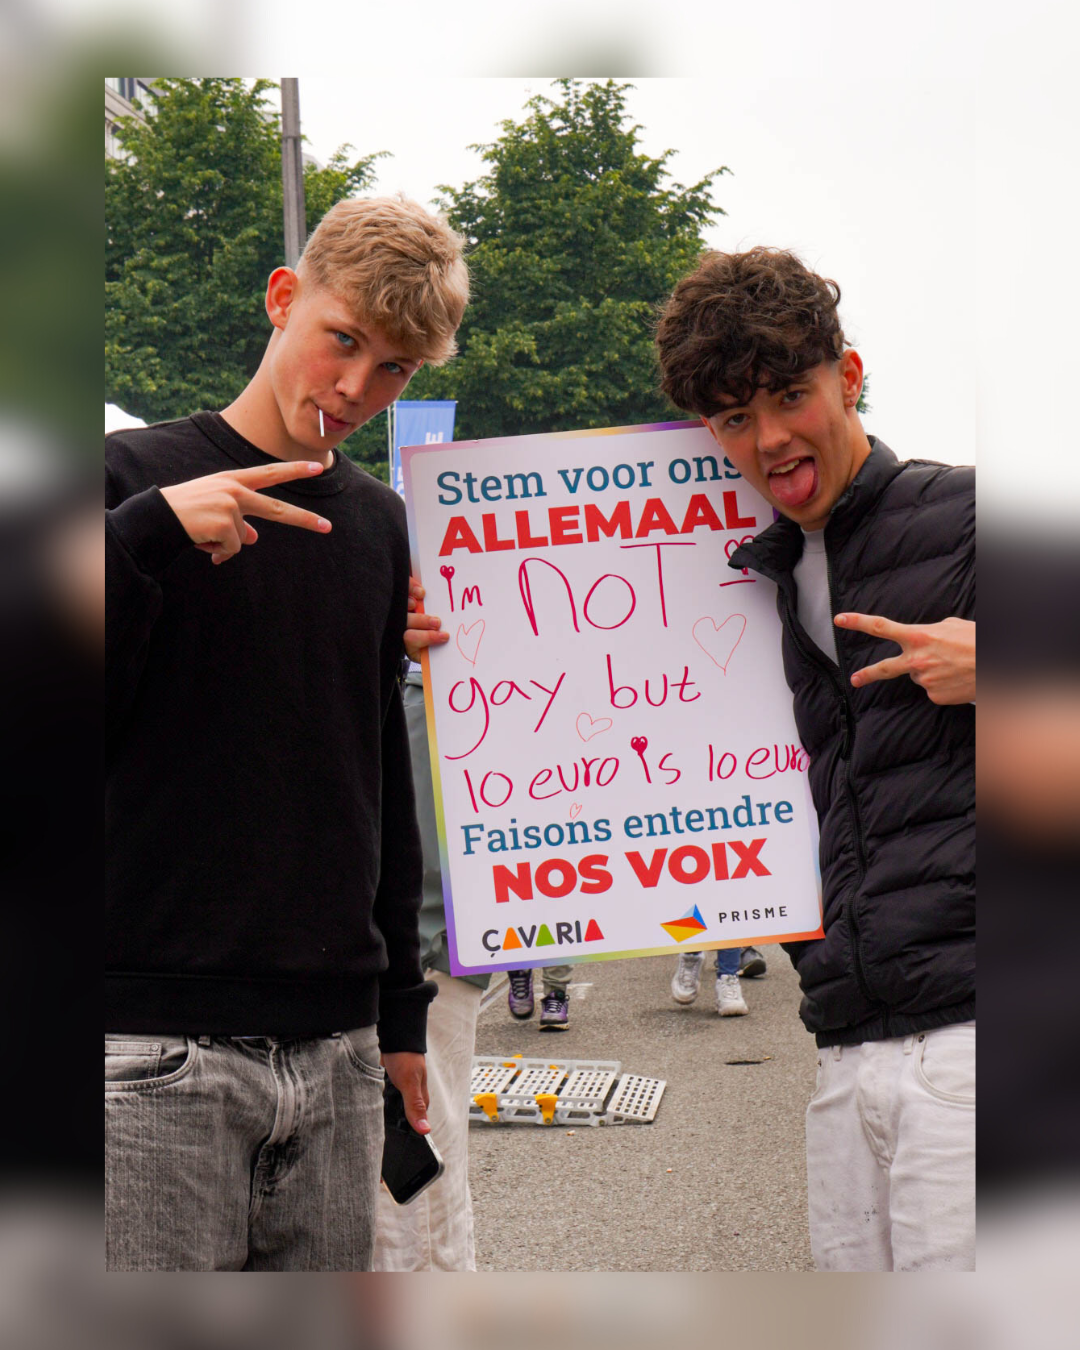 Stem voor ons
ALLEMAAL
im NOT
gay but
10 euro is 10 euro
Faisons entendre
NOS VOIX
ÇAVARIA
PRISME